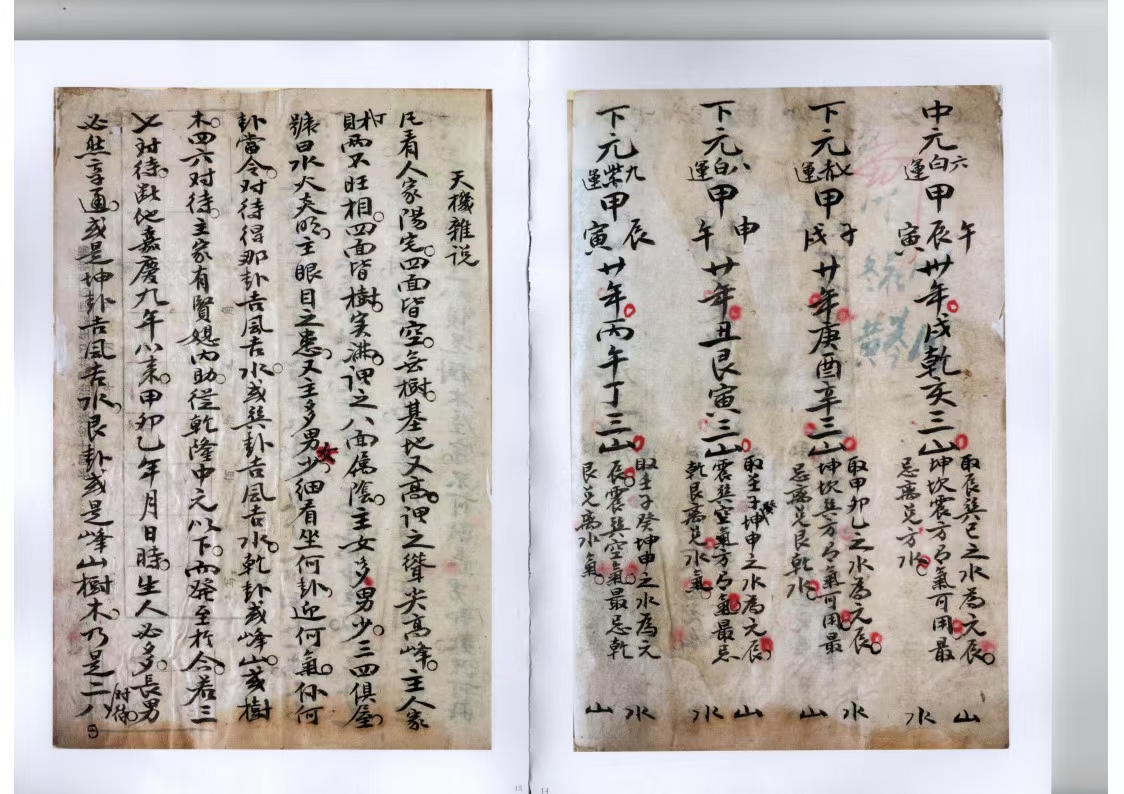 中元六白運甲午辰寅廿年戌乾亥三山
取辰巽巳之水為元辰
坤坎震方之氣可用最
忌離兌方水
山水
下元七赤運甲子戌廿年庚酉辛三山
取甲卯乙之水為元辰
坤坎巽方之氣可用最
忌離兌艮乾水
水山
下元八白運甲申午廿年丑艮寅三山
取壬子癸坤申之水為元辰
震巽空氣方之氣最忌
乾艮離兌水氣
山水
下元九紫運甲辰寅廿年丙午丁三山
取壬子癸坤申之水為元
辰震巽空氣最忌乾
艮兌離水氣
水山
天機雜说
凡看人家陽宅四面皆空無樹基地又高謂之聳尖高峰主人家
財兩不旺相四面皆樹实满谓之八面傷陰主女多男少三四俱屋
號曰水火夹主眼目之患又主多男少女细看坐何卦迎何氣作何
卦當令对待得那卦吉風吉水或巽卦吉風吉水乾卦或峰山或樹
木四六对待主家有賢媳内助從乾隆中元以下而發至於今若三
七对待此他嘉慶九年以来甲卯乙年月日時生人必多長男
必然亨通或是坤卦吉風吉水艮卦或是峰山樹木乃是二八对待
13
14